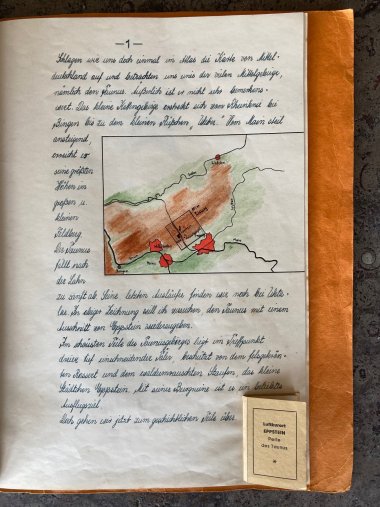 — 1 —
Schlagen wir uns doch einmal im Atlas die Karte von Mittel-
deutschland auf und betrachten uns eins der vielen Mittelgebirge,
nämlich den Taunus. Äußerlich ist es nicht sehr bemerkens-
wert. Das kleine Kettengebirge erstreckt sich vom Rheinknie bei
Bingen bis zu dem kleinen Flüßchen „ “. Vom Main steil
ansteigend,
erreicht es
seine größten
Höhen im
großen u.
kleinen
Feldberg.
Der Taunus
fällt nach
der Lahn
zu sanft ab. Seine letzten Ausläufer finden wir noch bei
In obiger Zeichnung will ich versuchen den Taunus mit einem
Ausschnitt von Eppstein wiederzugeben.
Im schönsten Teile des Taunusgebirges liegt im Treffpunkt
dreier tief einschneidender Täler, beschützt von dem
Rossert und dem Staufen, das kleine
Städtchen Eppstein. Mit seiner Burgruine ist es ein beliebtes
Ausflugsziel.
Doch gehen wir jetzt zum geschichtlichen Teile über.
Luftkurort
EPPSTEIN
Perle
des Taunus